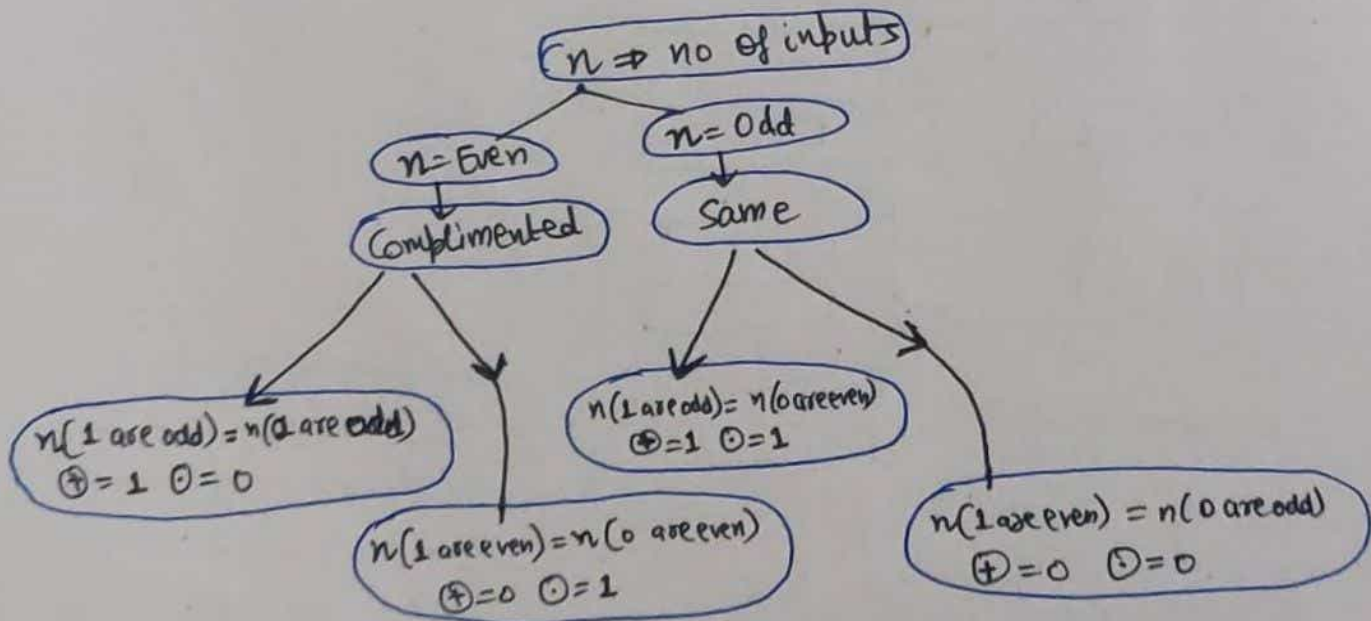 n ⇒ no of inputs
n = Even
n = Odd
Complimented
Same
n(1 are odd) = n(0 are odd)
⊕ = 1 ⊙ = 0
n(1 are even) = n(0 are even)
⊕ = 0 ⊙ = 1
n(1 are odd) = n(0 are even)
⊕ = 1 ⊙ = 1
n(1 are even) = n(0 are odd)
⊕ = 0 ⊙ = 0